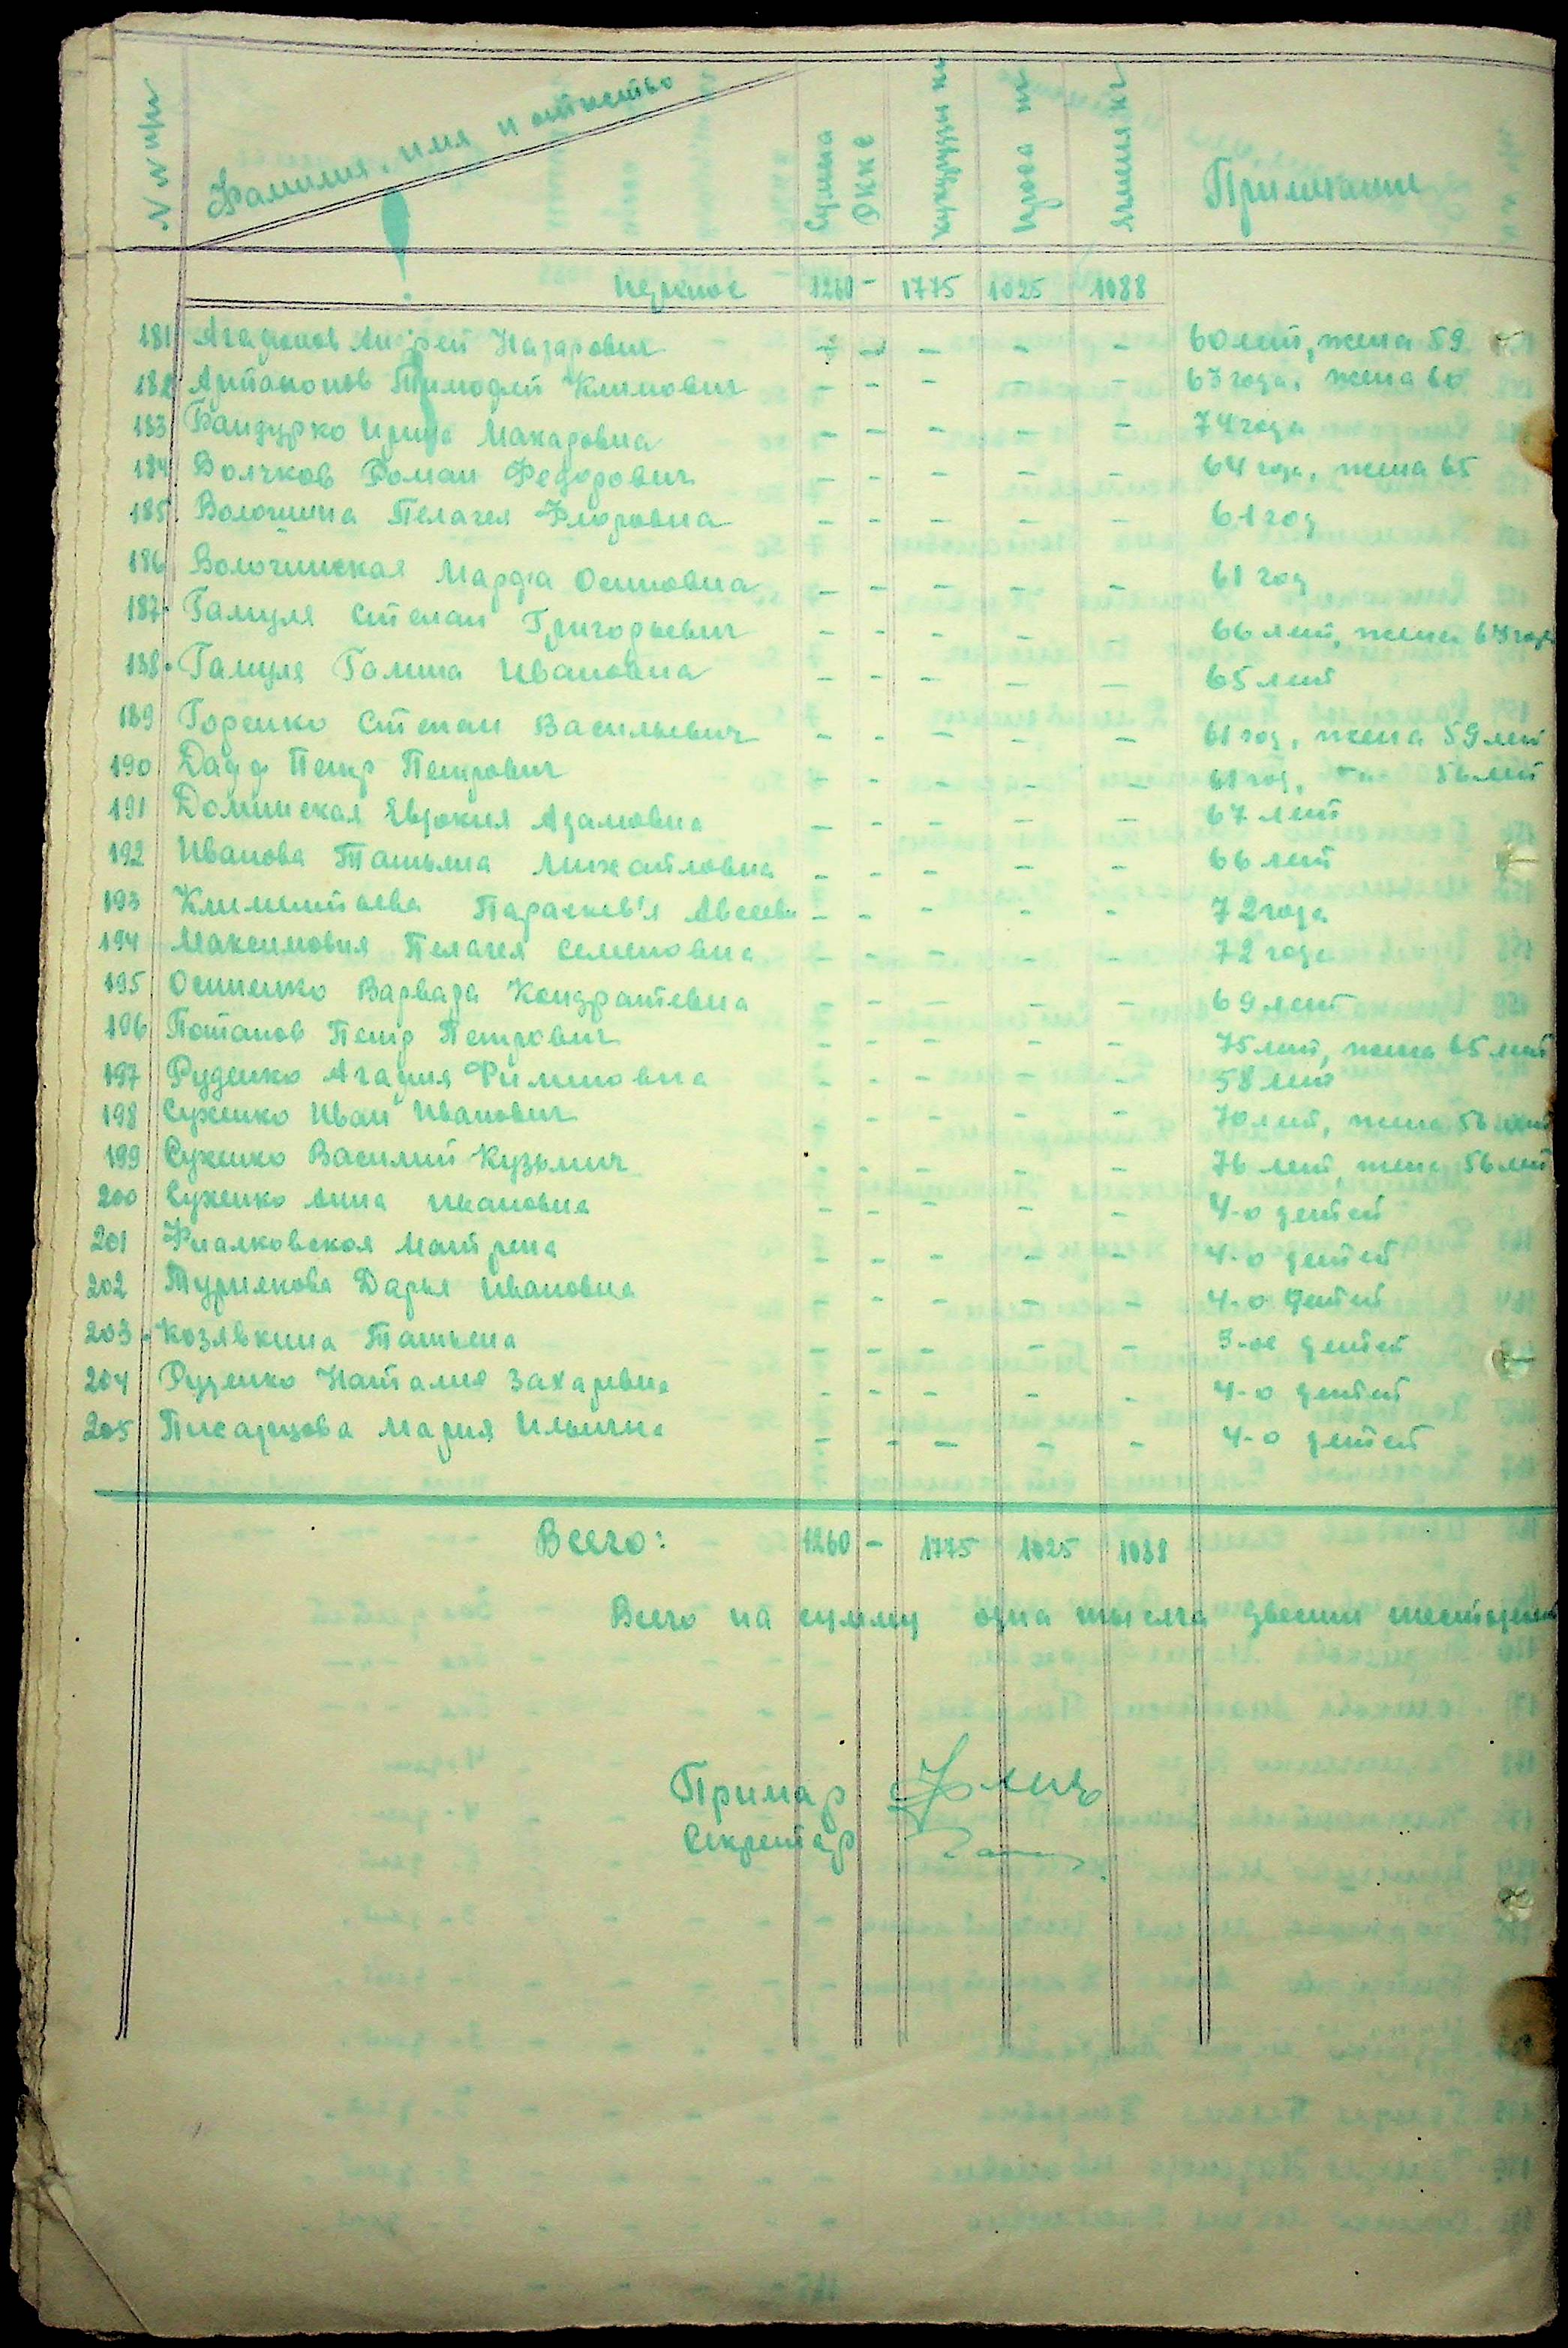 N N п/п Фамилия, имя и отчество Сумма РККС кукурузы кг проса кг ячменя кг Примечание
1260 - 1775 1025 1088
181 Агафонов Андрей Назарович - - - - - 60 лет, жена 59
182 Артамонов Тимофей Климович - - - - - 63 года, жена 60
183 Бандурко Ирина Макаровна - - - - - 74 года
184 Волчков Роман Федорович - - - - - 64 года, жена 65
185 Волошина Пелагея Флоровна - - - - - 61 год
186 Волочинская Марфа Осиповна - - - - - 61 год
187 Гамуля Степан Григорьевич - - - - - 66 лет, жена 64 года
188 Гамуля Галина Ивановна - - - - - 65 лет
189 Горенко Степан Васильевич - - - - - 61 год, жена 59 лет
190 Петр Петрович - - - - - 61 год, 56 лет
191 Доминская Евдокия Адамовна - - - - - 67 лет
192 Иванова Татьяна Михайловна - - - - - 66 лет
193 Климентьева Парасков'я Авсеевн - - - - - 72 года
194 Пелагея Семеновна - - - - - 72 года
195 Осипенко Варвара Кондратевна - - - - - 69 лет
196 Потапов Петр Петрович - - - - - 75 лет, жена 65 лет
197 Руденко Агафия Филиповна - - - - - 58 лет
198 Сухенко Иван Иванович - - - - - 70 лет, жена 56 лет
199 Сухенко Василий Кузьмич - - - - - 76 лет, жена 56 лет
200 Сухенко Анна Ивановна - - - - - 4-о детей
201 Фиалковская Матрена - - - - - 4-о детей
202 Турилкова Дарья Ивановна - - - - - 4-о детей
203 Козявкина Татьяна - - - - - 3-ое детей
204 Руденко Наталия Захаревна - - - - - 4-о детей
205 Писаренова Мария Ильична - - - - - 4-о детей
Всего: 1260 - 1775 1025 1088
Всего на сумму одна тысяча двести шестьдесят
Примар
Секретар